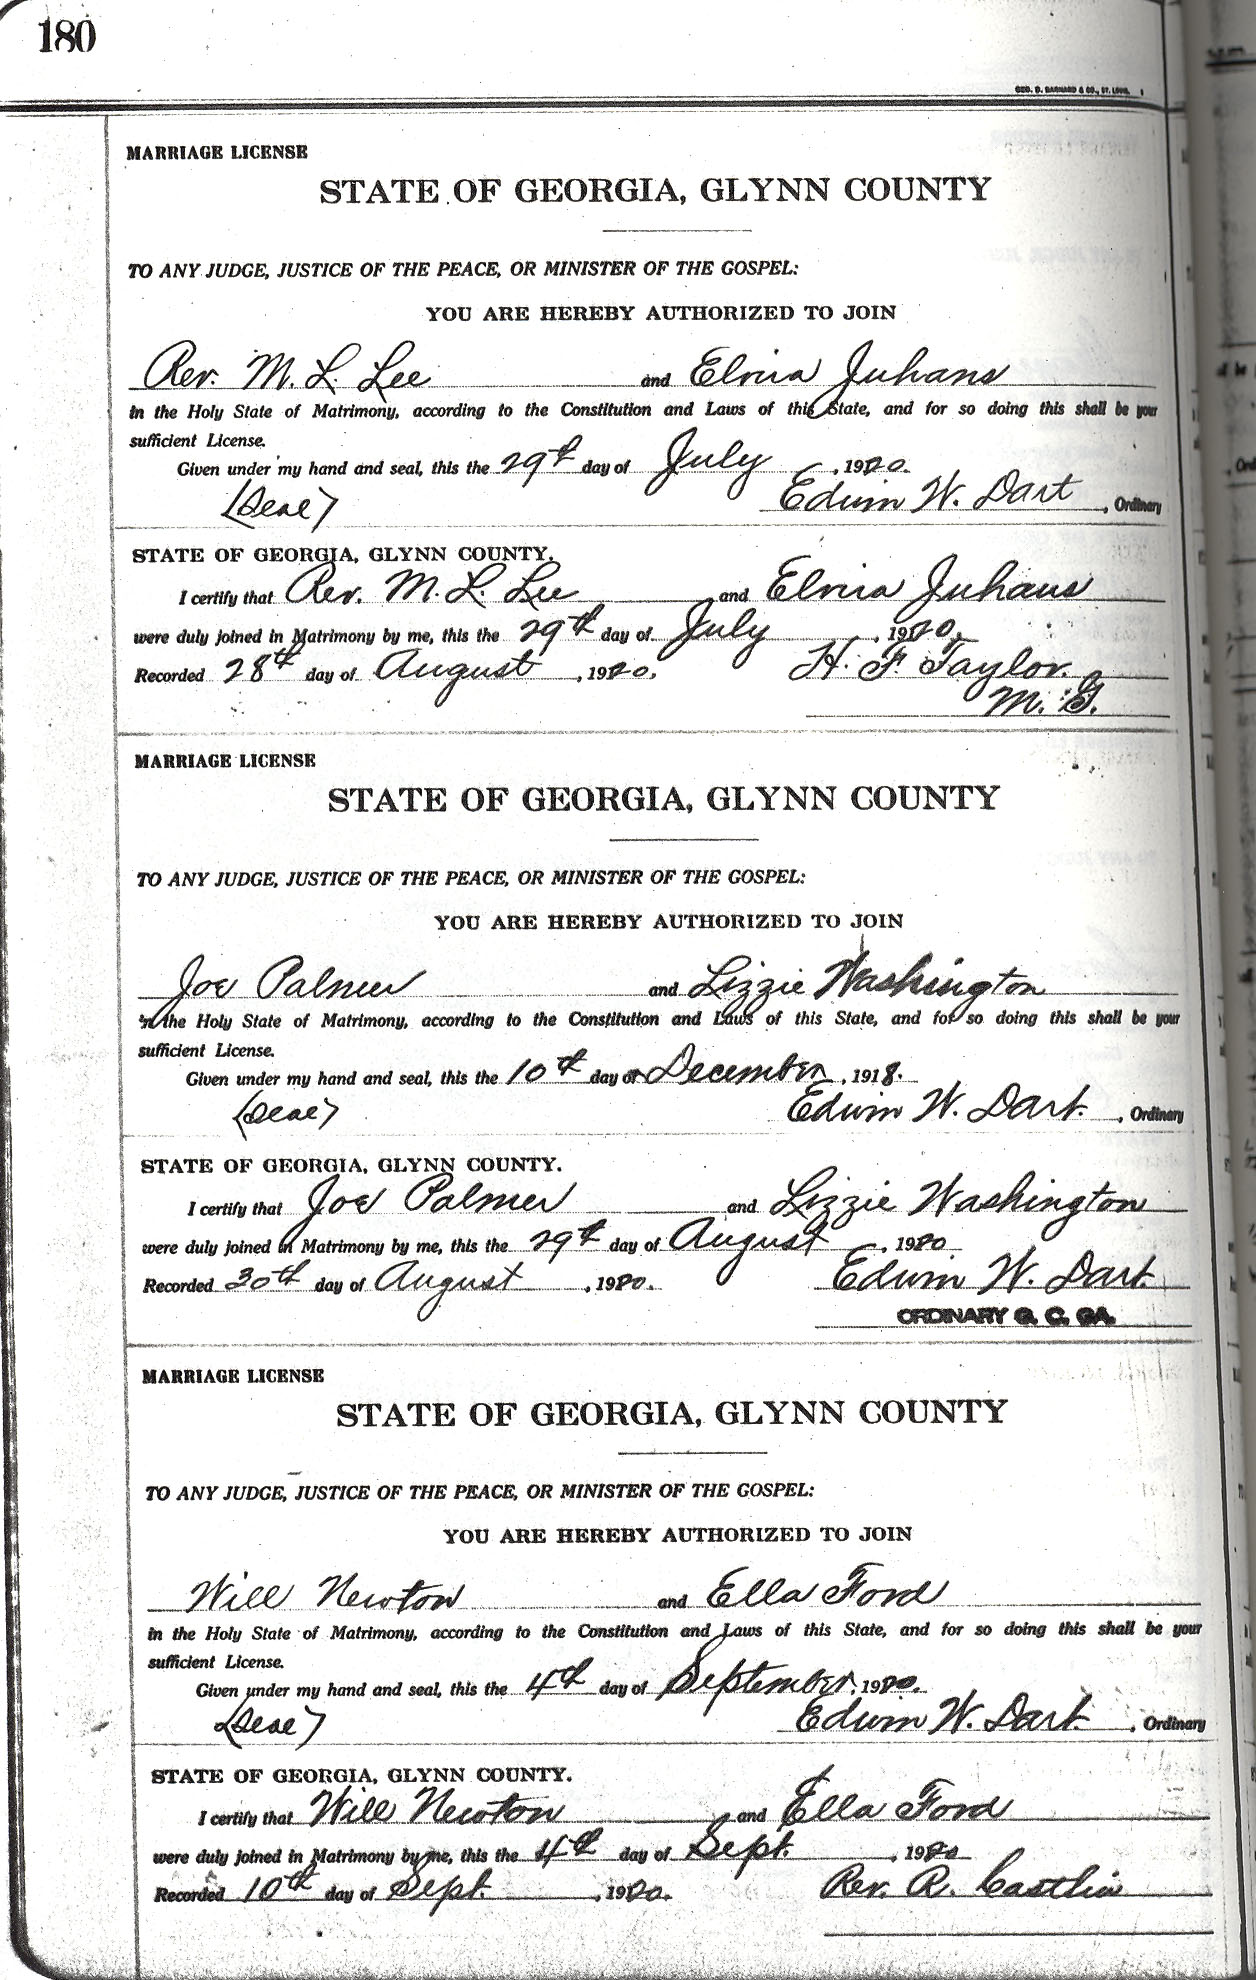 180
GEO. D. BARNARD & CO., ST. LOUIS.
MARRIAGE LICENSE
STATE OF GEORGIA, GLYNN COUNTY
TO ANY JUDGE, JUSTICE OF THE PEACE, OR MINISTER OF THE GOSPEL:
YOU ARE HEREBY AUTHORIZED TO JOIN
Rev. M. L. Lee and Elvia Juhans
in the Holy State of Matrimony, according to the Constitution and Laws of this State, and for so doing this shall be your
sufficient License.
Given under my hand and seal, this the 29th day of July, 1920.
(Seal) Edwin W. Dart, Ordinary
STATE OF GEORGIA, GLYNN COUNTY.
I certify that Rev. M. L. Lee and Elvia Juhans
were duly joined in Matrimony by me, this the 29th day of July, 1920.
Recorded 28th day of August, 1920. H. F. Taylor.
M. G.
MARRIAGE LICENSE
STATE OF GEORGIA, GLYNN COUNTY
TO ANY JUDGE, JUSTICE OF THE PEACE, OR MINISTER OF THE GOSPEL:
YOU ARE HEREBY AUTHORIZED TO JOIN
Joe Palmer and Lizzie Washington
in the Holy State of Matrimony, according to the Constitution and Laws of this State, and for so doing this shall be your
sufficient License.
Given under my hand and seal, this the 10th day of December, 1918.
(Seal) Edwin W. Dart, Ordinary
STATE OF GEORGIA, GLYNN COUNTY.
I certify that Joe Palmer and Lizzie Washington
were duly joined in Matrimony by me, this the 29th day of August, 1920.
Recorded 30th day of August, 1920. Edwin W. Dart
ORDINARY G. C. GA.
MARRIAGE LICENSE
STATE OF GEORGIA, GLYNN COUNTY
TO ANY JUDGE, JUSTICE OF THE PEACE, OR MINISTER OF THE GOSPEL:
YOU ARE HEREBY AUTHORIZED TO JOIN
Will Newton and Ella Ford
in the Holy State of Matrimony, according to the Constitution and Laws of this State, and for so doing this shall be your
sufficient License.
Given under my hand and seal, this the 4th day of September, 1920.
(Seal) Edwin W. Dart, Ordinary
STATE OF GEORGIA, GLYNN COUNTY.
I certify that Will Newton and Ella Ford
were duly joined in Matrimony by me, this the 4th day of Sept., 1920
Recorded 10th day of Sept., 1920. Rev. R.